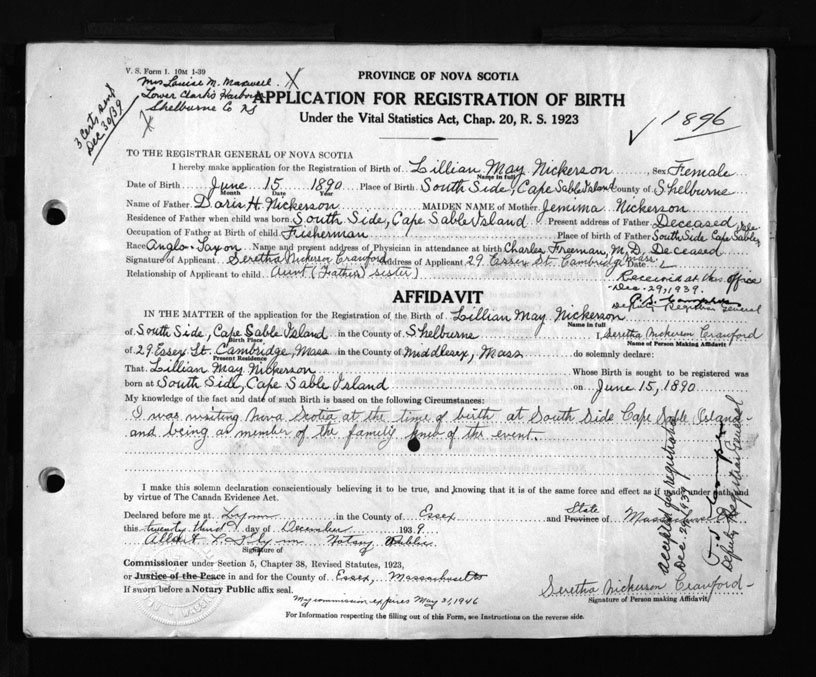 V. S. Form 1. 10M 1-39
Mrs Louise M. Maxwell. X
Lower Clark's Harbour
Shelburne Co NS
3 Certs sent
Dec 30/39
PROVINCE OF NOVA SCOTIA
APPLICATION FOR REGISTRATION OF BIRTH
Under the Vital Statistics Act, Chap. 20, R. S. 1923
✓ 1896
TO THE REGISTRAR GENERAL OF NOVA SCOTIA
I hereby make application for the Registration of Birth of Lillian May Nickerson, Sex Female
Name in full
Date of Birth June 15 1890 Place of Birth South Side, Cape Sable Island County of Shelburne
Month Date Year
Name of Father Doris H. Nickerson MAIDEN NAME of Mother Jemima Nickerson
Residence of Father when child was born South Side, Cape Sable Island Present address of Father Deceased
Occupation of Father at Birth of child Fisherman Place of birth of Father South Side Cape Sable Isle
Race Anglo-Saxon Name and present address of Physician in attendance at birth Charles Freeman, M.D. Deceased
Signature of Applicant Seretha Nickerson Crawford Address of Applicant 29 Essex St. Cambridge Mass. Date
Relationship of Applicant to child Aunt (Father's sister)
Received at this office
Dec. 29, 1939.
Deputy Registrar General
AFFIDAVIT
IN THE MATTER of the application for the Registration of the Birth of Lillian May Nickerson
Name in full
of South Side, Cape Sable Island in the County of Shelburne I, Seretha Nickerson Crawford
Birth Place Name of Person Making Affidavit
of 29 Essex St. Cambridge, Mass in the County of Middlesex, Mass do solemnly declare:
Present Residence
That Lillian May Nickerson Whose Birth is sought to be registered was
born at South Side, Cape Sable Island on June 15, 1890.
My knowledge of the fact and date of such Birth is based on the following Circumstances:
I was visiting Nova Scotia at the time of birth at South Side Cape Sable Island-
and being a member of the family knew of the event.
I make this solemn declaration conscientiously believing it to be true, and knowing that it is of the same force and effect as if made under oath and
by virtue of The Canada Evidence Act.
Declared before me at Lynn in the County of Essex and State Province of Massachusetts
this twenty third day of December 1939
Notary Public
Signature of
Commissioner under Section 5, Chapter 38, Revised Statutes, 1923,
or Justice of the Peace in and for the County of Essex, Massachusetts
If sworn before a Notary Public affix seal.
My commission expires May 31, 1946
Seretha Nickerson Crawford
Signature of Person making Affidavit
For Information respecting the filling out of this Form, see Instructions on the reverse side.
accepted for registration
Dec. 29, 1939
Deputy Registrar General